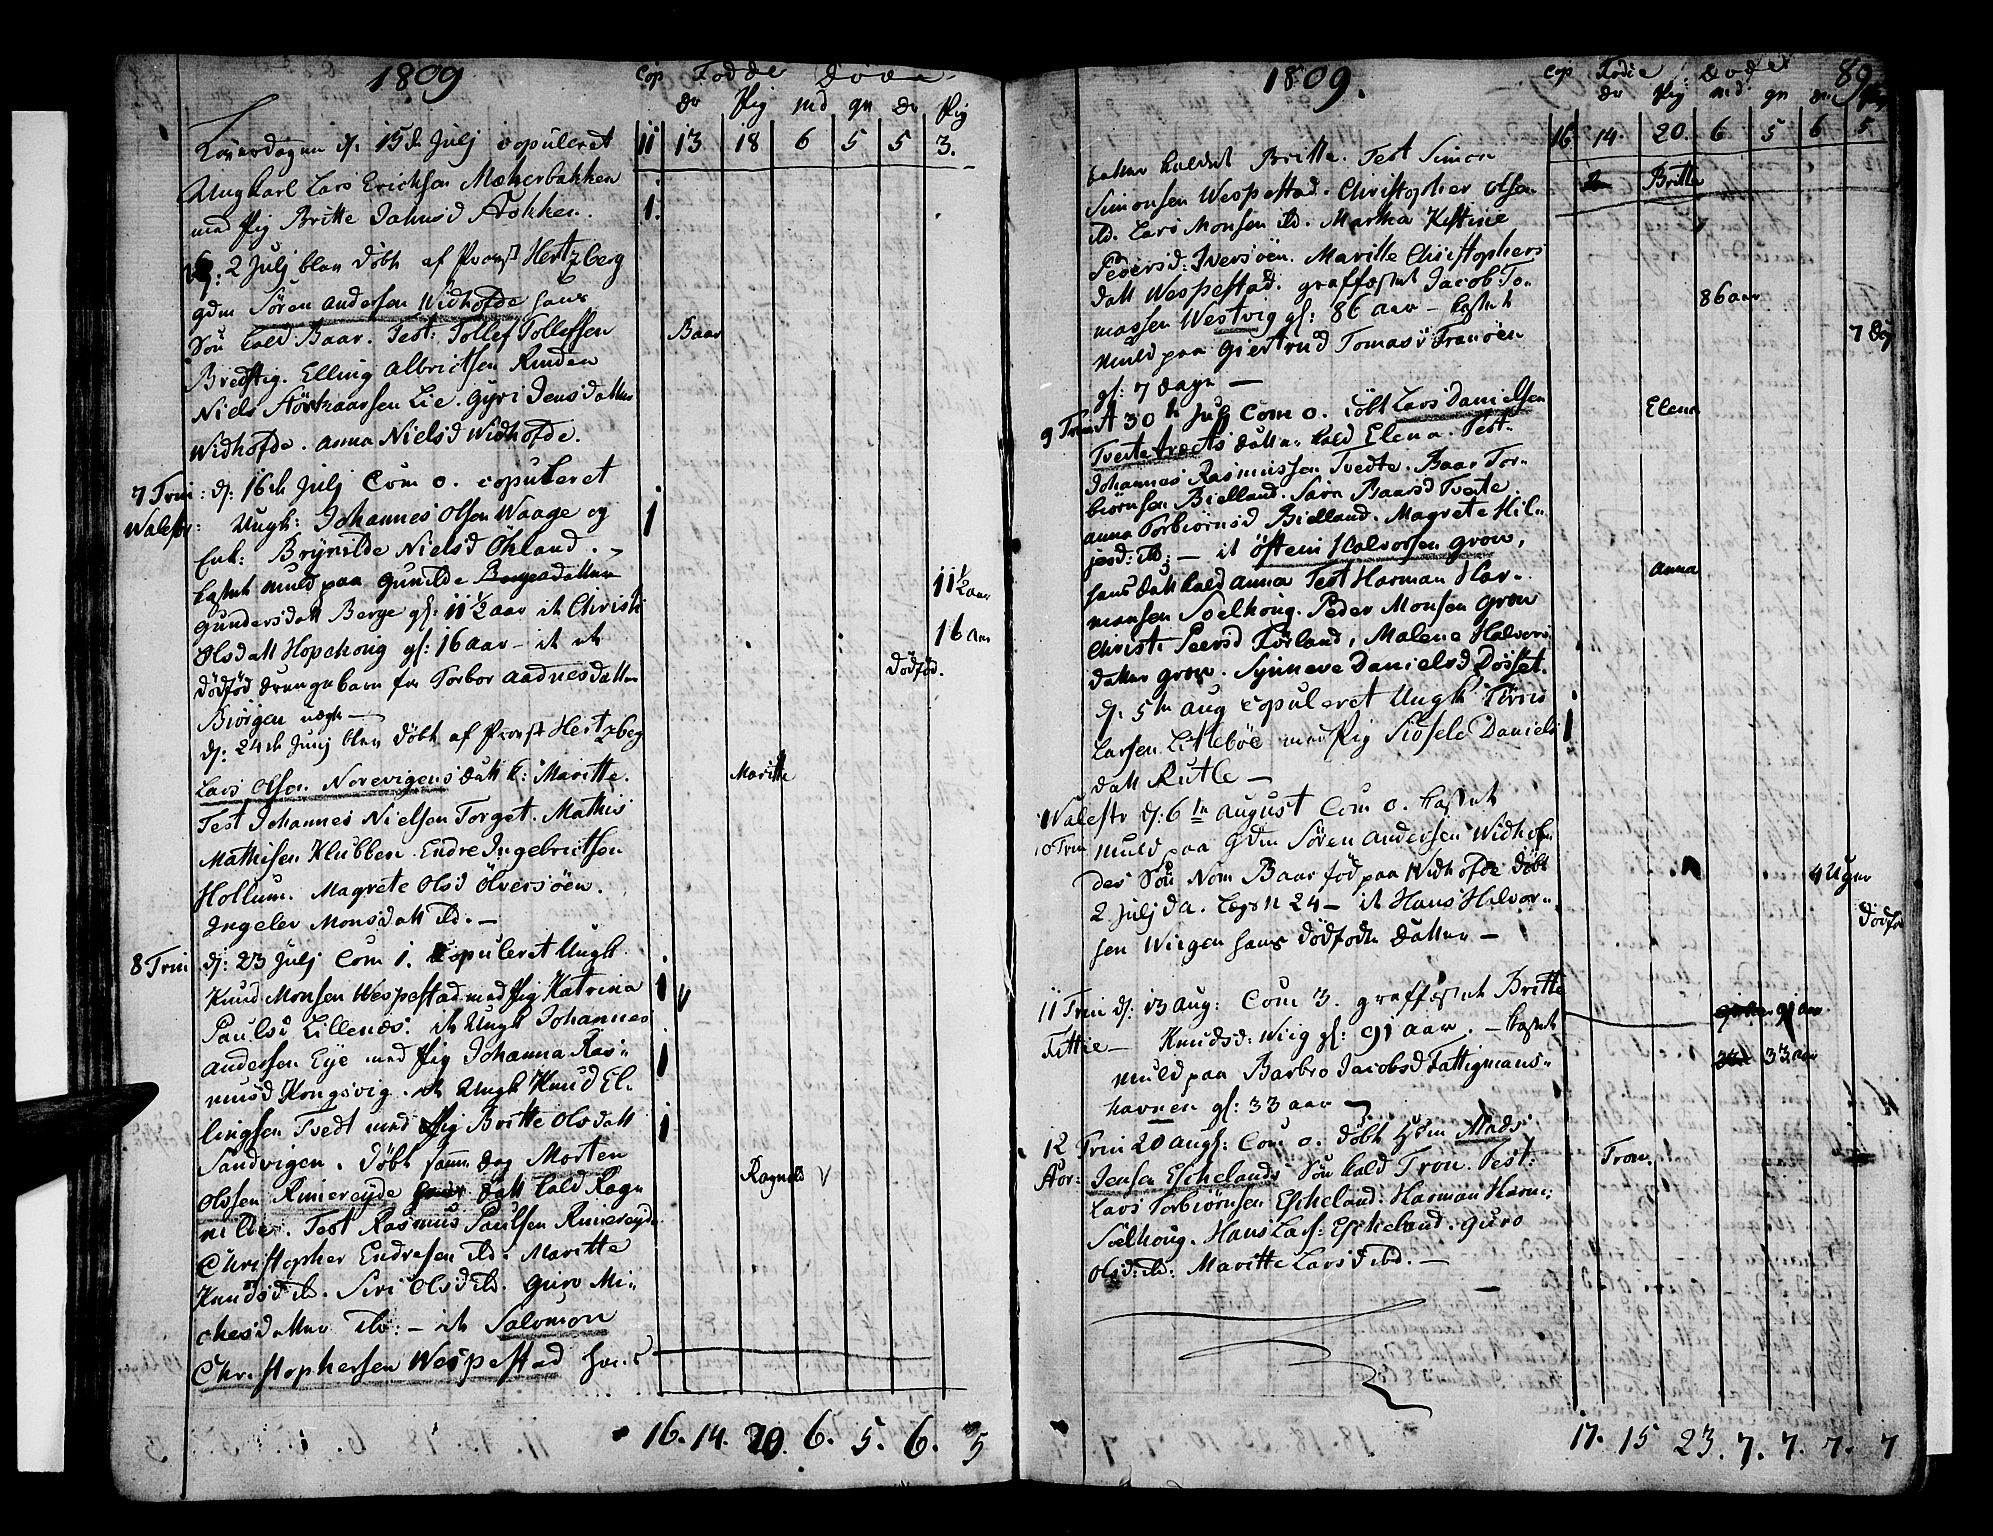 1809
Cop Fødde Døde
Dr Pig md qv Dr Pig
Løverdagen d: 15de Julj copuleret
11 13 18 6 5 5 3.
Ungkarl Lars Erichsen Mækerbakken
med Pig Britte Johnsd Stokken. 1.
d: 2 Julj blev døbt af Provst Hertzberg
gdm Sören Andersen Widhofde hans
Søn kald Baar. Test: Tollef Tollefsen Baar
Bredstig. Elling Albrictsen Rinden
Niels Störkaarsen Lie. Gyri Jensdatter
Widhofde. Anna Nielsd Widhofde.
7 Trin: d: 16de Julj Com 0. copuleret
Walestr: Ungk: Johannes Olsen Waage og 1
Enk: Brynilde Nielsd Økland.
kastet muld paa Gunilde
Gundersdatt Berge gl: 11½ aar it Christi 11½ aar
Olsdatt Hopchoug gl: 16 aar - it et 16 aar
dødfød drengebarn fra Torbor Aadnesdatter dødfød.
Biörgen
d: 24de Junj blev døbt af Provst Hertzberg
Lars Olsen Norevigens datt k: Maritte. Maritte
Test Johannes Nielsen Torget. Mathis
Mathisen Klubben. Endre Ingebrictsen
Hollum. Magrete Olsd Olversöen.
Ingeler Monsdatt ibd. -
8 Trin d: 23 Julj Com 1. Copuleret Ungk
Knud Monsen Wespestad med Pig Katrina 1
Paulsd Lillenæs. it Ungk Johannes
Andersen Eye med Pig Johanna Ras- 1
musd Kongsvig. it Ungk Knud El-
lingsen Tvedt med Pig Britte Olsdatt 1
Sandvigen. døbt samme dag Morten
Olssen Rimereyde datt kald Rag- Ragnilde
nilde. Test Rasmus Paulsen Rimereyde
Christopher Endresen ibd. Maritte
Knudsd ibd. Siri Olsd ibd. Guro Mi-
chelsdatter ibd: - it Salomon
Christophersen Wespestad hans
16. 14. 20. 6. 5. 6. 5
1809. 89
Cop Fødde Døde
Dr Pig md qv Dr Pig
16 14 20. 6 5 6 5
datter kaldet Britte. Test Simon Britte
Simonsen Wespestad. Christopher Olsen
ibd. Lars Monsen ibd. Martha Kistine
Pedersd: Iversöen. Maritte Christophers
datt Wespestad. graffæstet Jacob To- 86 aar
massen Westvig gl: 86 aar - kastet
muld paa Giertrud Tomasd Tranöen 7 Dag
gl: 7 Dage -
9 Trin d 30te Julj Com 0. døbt Lars Danielsen Elena
Tveitetræets datter kald Elena. Test
Johannes Rasmussen Tvedte. Baar Tor-
biørnsen Bielland. Sara Baarsd Tvedte
Anna Torbiørnsd Bielland. Magrete Hil-
jesd: ibd: - it Östein Halvorsen Grov,
hans datt kald Anna Test Harman Har- Anna
mansen Soelhoug. Peder Monsen Grov
Christi Peersd Förland, Malene Halvors
datter Grov. Synneve Danielsd Døsset.
d: 5te Aug copuleret Ungk Törris
Larsen Litlebøe med Pig Siösele Daniels 1
datt Rutle -
Walestr d: 6te August Com 0. kastet
10 Trin muld paa Gdm Sören Andersen Widhof-
des Søn Nom Baar fød paa Widhofde døbt 4 Uger
2 Julj d A. - it Hans Halvor-
sen Wiigen hans dødfødte datter - dødfød
11 Trin d: 13 Aug: Com 3. graffæstet Britte 91 aar
Fittie - Knudsd: Wiig gl: 91 aar. - kastet
muld paa Barbro Jacobsd Fattigmans- 33 aar
havnen gl: 33 aar -
12 Trin 20 Aug: Com 0. Døbt Gdm Mads
Stor: Jensen Eskelands Søn kald Tron. Test: Tron.
Lars Torbiörnsen Eskeland. Harman Harm:
Soelhoug. Hans Lars: Eskeland. Guro
Olsd: ibd: Maritte Larsd ibd. -
17. 15 23. 7. 7. 7. 7